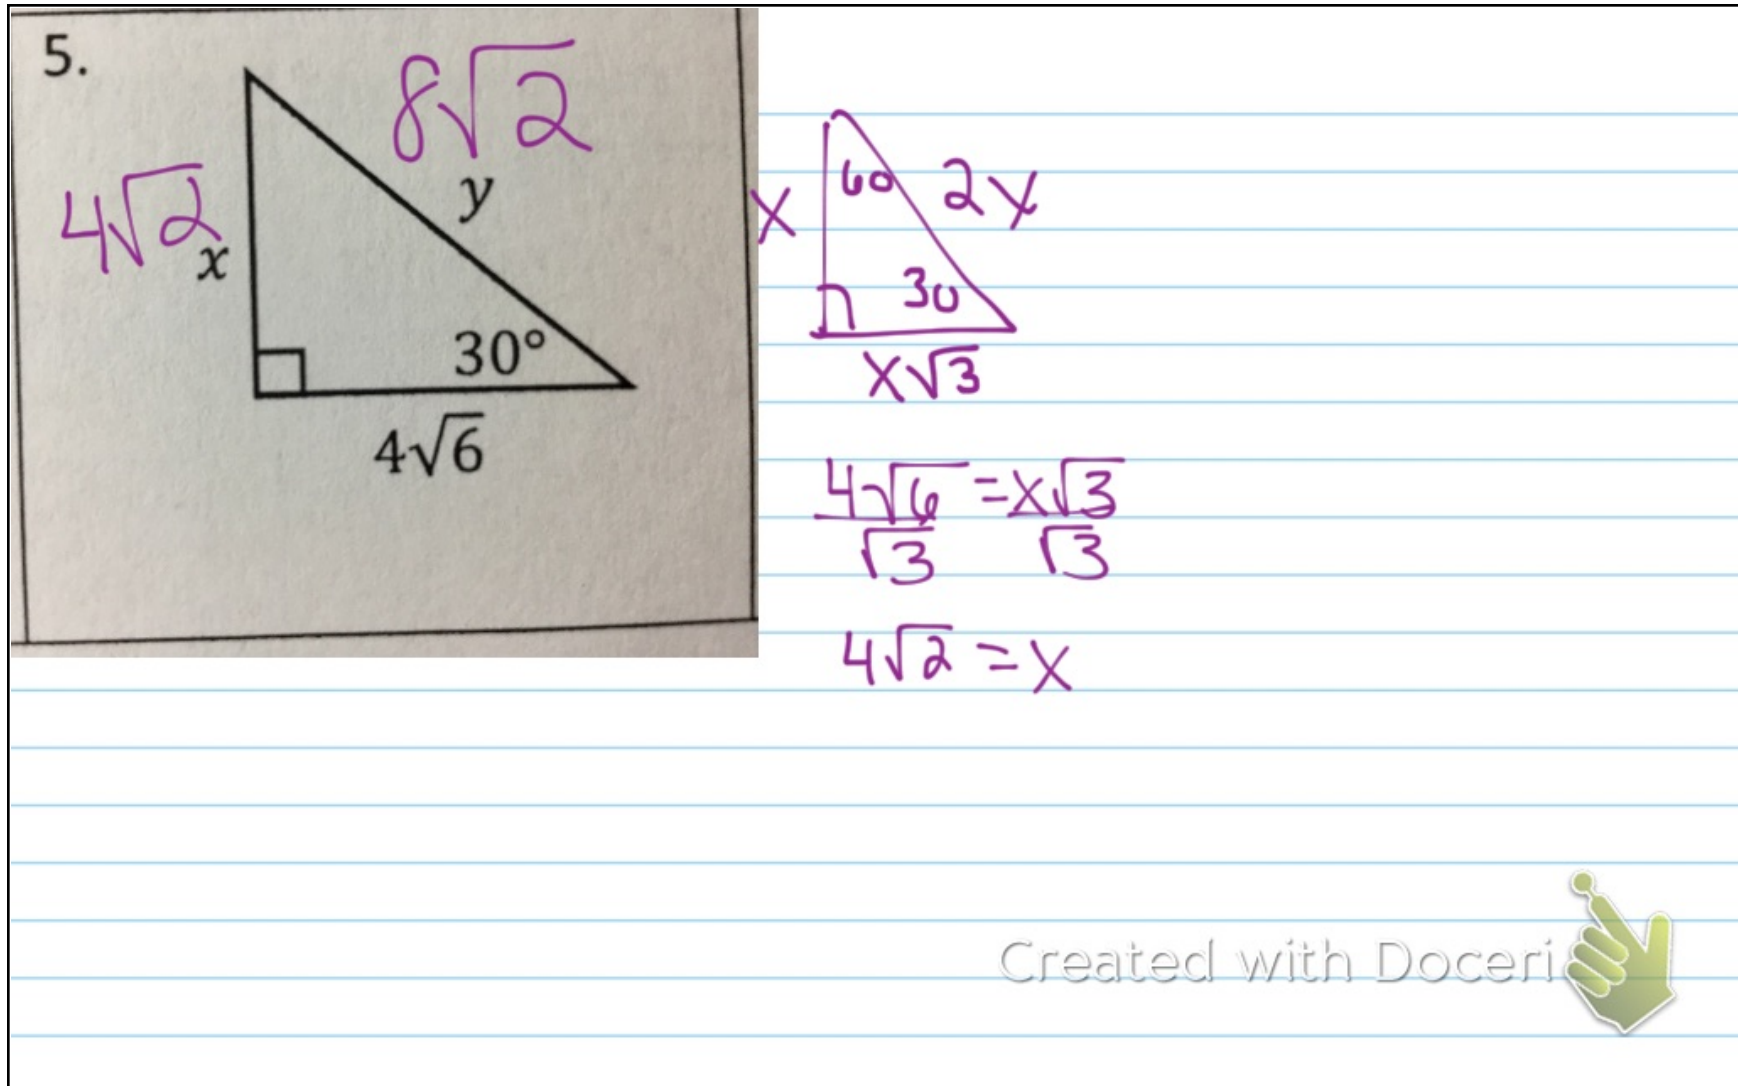 5.
8√2
4√2
y
x
30°
4√6
60
2x
x
30
x√3
4√6 = x√3
√3 √3
4√2 = x
Created with Doceri